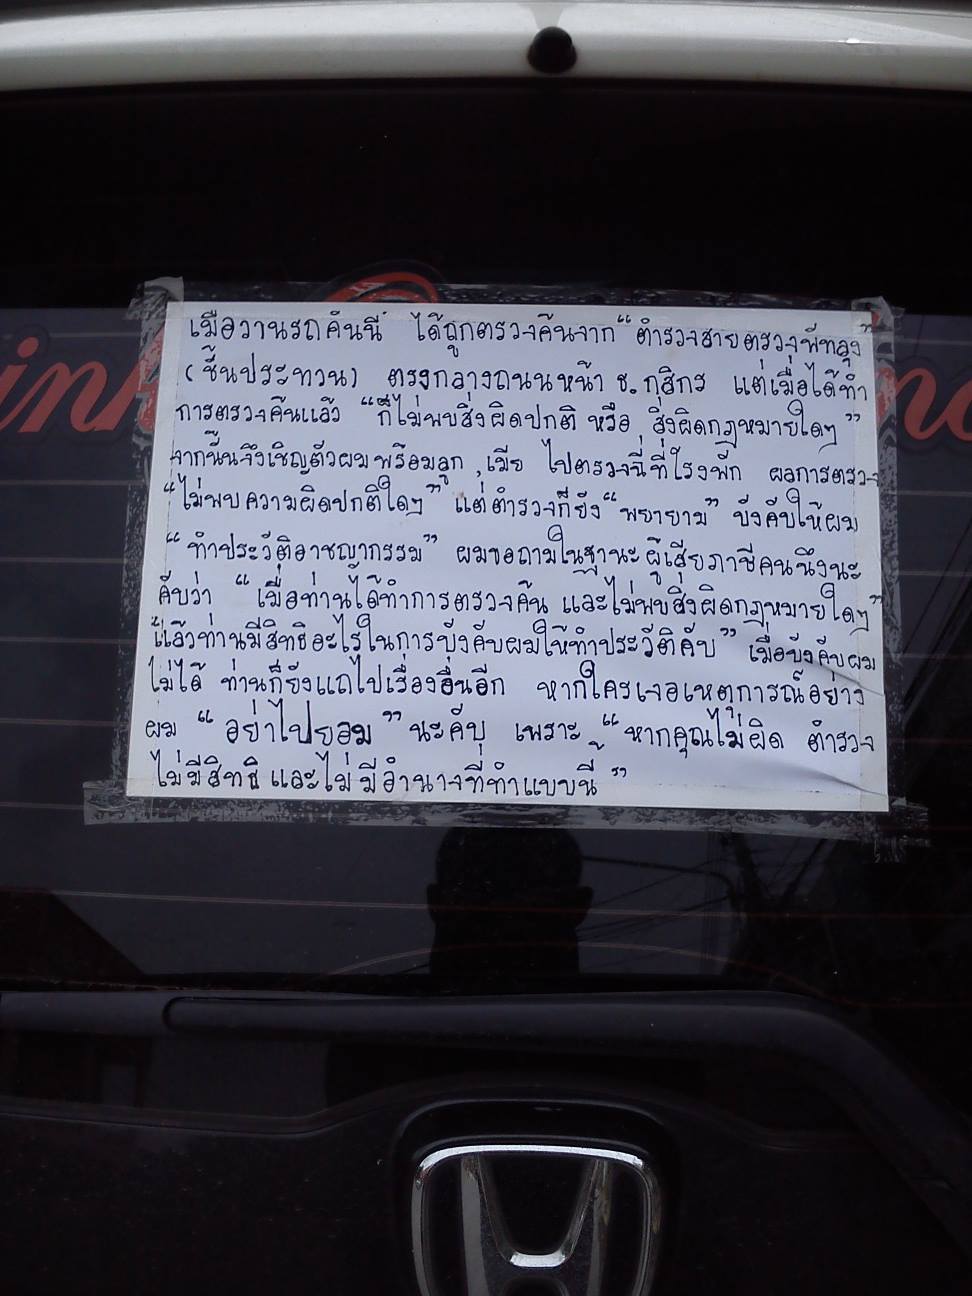 เมื่อวานรถคันนี้ ได้ถูกตรวจค้นจาก “ตำรวจสายตรวจพัทลุง”
(ชั้นประทวน) ตรงกลางถนนหน้า ธ.กสิกร แต่เมื่อได้ทำ
การตรวจค้นแล้ว “ก็ไม่พบสิ่งผิดปกติ หรือ สิ่งผิดกฎหมายใดๆ”
จากนั้นจึงเชิญตัวผมพร้อมลูก,เมีย ไปตรวจฉี่ที่โรงพัก ผลการตรวจ
“ไม่พบความผิดปกติใดๆ” แต่ตำรวจก็ยัง “พยายาม” บังคับให้ผม
“ทำประวัติอาชญากรรม” ผมขอถามในฐานะ ผู้เสียภาษีคนนึงนะ
คับว่า “เมื่อท่านได้ทำการตรวจค้น และไม่พบสิ่งผิดกฎหมายใดๆ”
“แล้วท่านมีสิทธิอะไรในการบังคับผมให้ทำประวัติคับ” เมื่อบังคับผม
ไม่ได้ ท่านก็ยังแถไปเรื่องอื่นอีก หากใครเจอเหตุการณ์อย่าง
ผม “อย่าไปยอม” นะคับ เพราะ “หากคุณไม่ผิด ตำรวจ
ไม่มีสิทธิ และไม่มีอำนาจที่ทำแบบนี้”